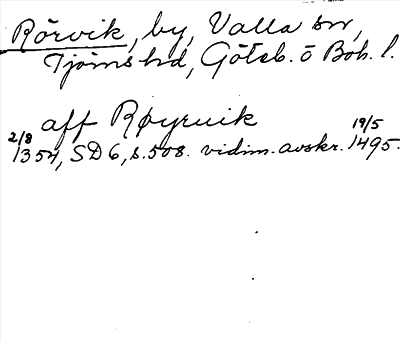 Rörvik, by, Valla sn,
Tjörns hd, Göteb. o Boh. l.
aff Røyruik
2/8 1354, SD 6, s. 508. vidim. avskr. 19/5 1495.